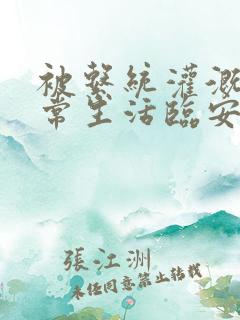 被繫統灌溉
常生活臨安
張江洲
未經同意禁止轉載